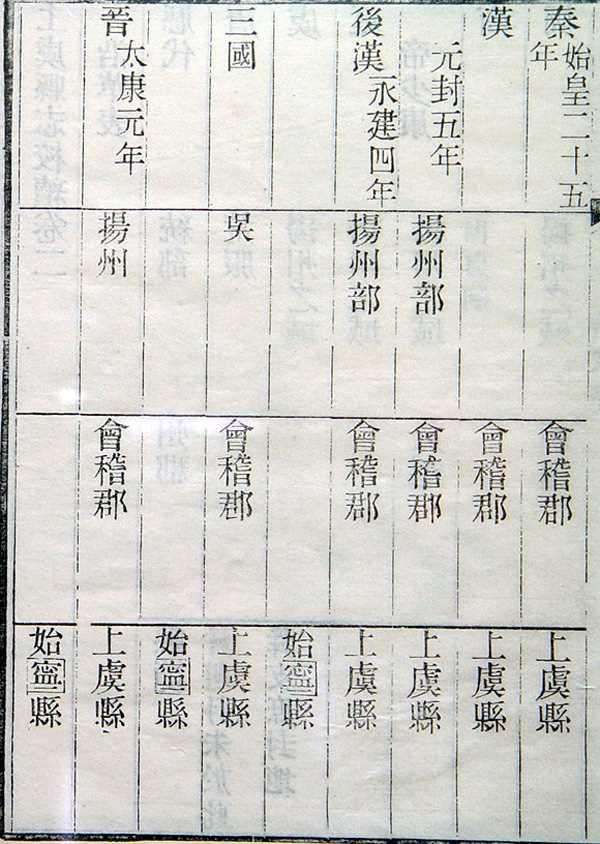 秦始皇二十五年 會稽郡 上虞縣
漢 會稽郡 上虞縣
元封五年 揚州部 會稽郡 上虞縣
後漢永建四年 揚州部 會稽郡 上虞縣
始寧縣
三國 吳 會稽郡 上虞縣
始寧縣
晉太康元年 揚州 會稽郡 上虞縣
始寧縣